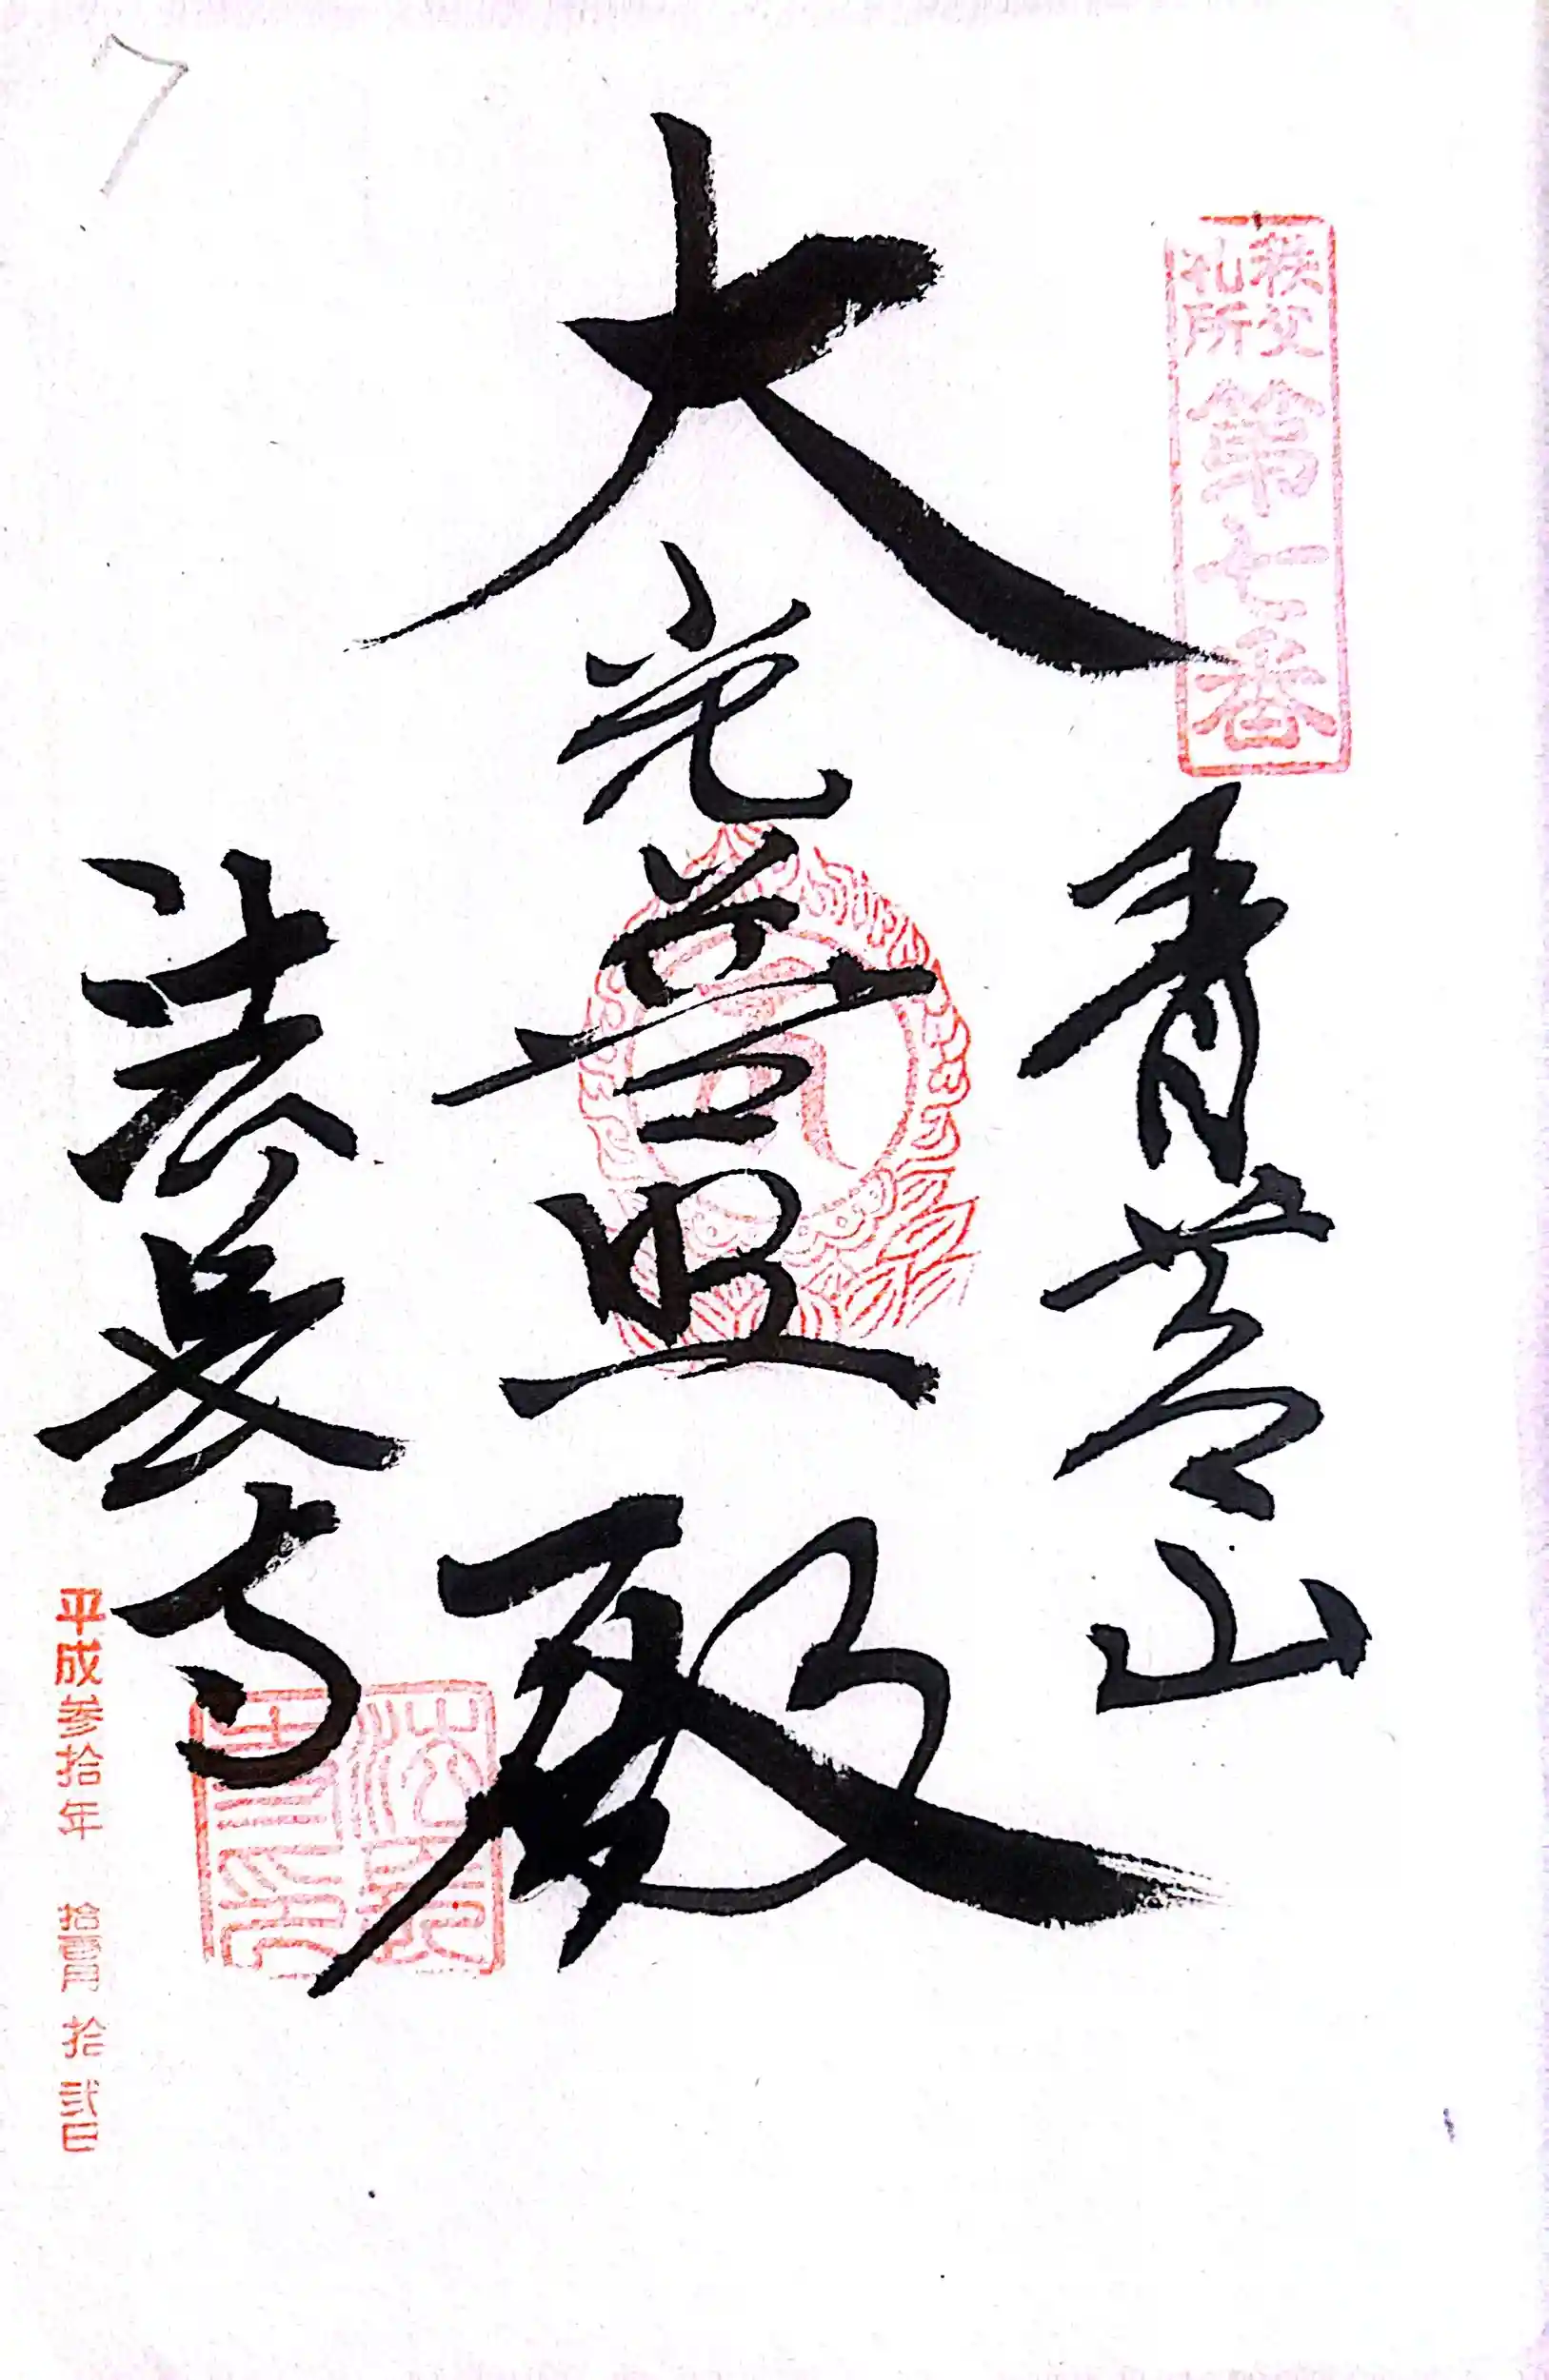 7
秩父
札所
第七番
青苔山
大光普照殿
法長寺
平成参拾年 拾壹月 拾弐日